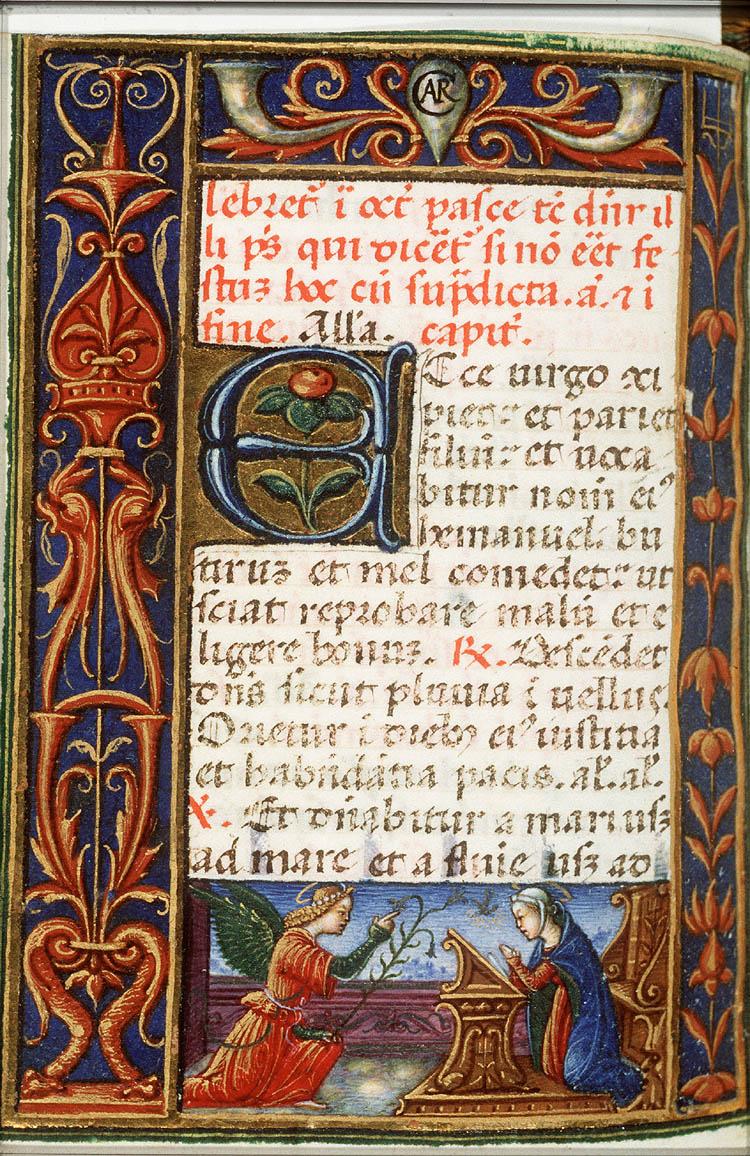 CAR
lebret̄ ī oct̄ pasce tēꝑ dn̄r il
li p̄s qui dicēt̄ si nō eēt fe-
stuꝫ hoc cū sup̄dicta. a. ⁊ i
fine. All'a. capit̄.
Ecce uirgo ↄci
piet: et pariet
filiū: et uoca
bitur nom̄ eiꝰ
hemanuel. bu
tiruꝫ et mel comedet: ut
sciat reprobare malū et e
ligere bonuꝫ. ℞. Descēdet
dn̄s sicut pluuia ī uelluꝫ.
Orietur i diebꝰ eiꝰ iustitia
et habūdātia pacis. al'. al'.
℣. Et dn̄abitur a mari usꝫ
ad mare et a fluīe usꝫ ad